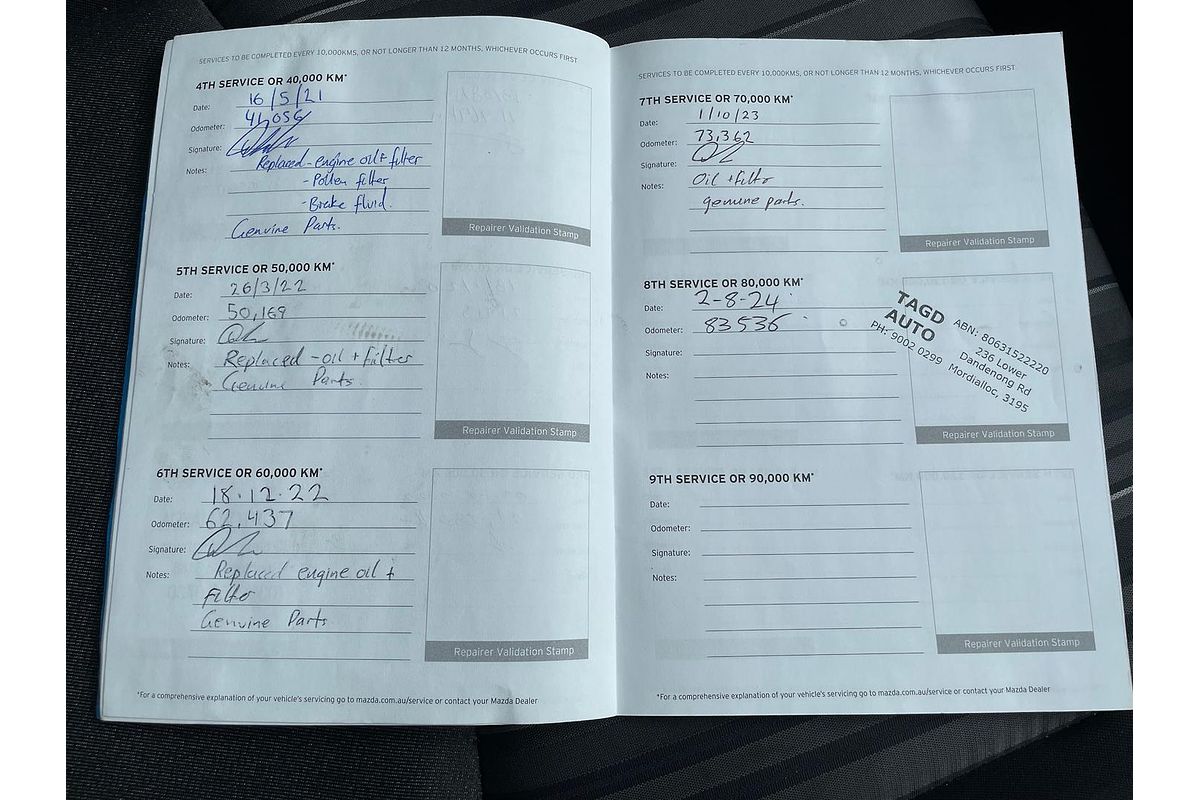 SERVICES TO BE COMPLETED EVERY 10,000KMS, OR NOT LONGER THAN 12 MONTHS, WHICHEVER OCCURS FIRST
4TH SERVICE OR 40,000 KM*
Date: 16/5/21
Odometer: 41,056
Signature:
Notes: Replaced - engine oil + filter
- Pollen filter
- Brake fluid.
Genuine Parts.
Repairer Validation Stamp
5TH SERVICE OR 50,000 KM*
Date: 26/3/22
Odometer: 50,169
Signature:
Notes: Replaced - oil + filter
Genuine Parts.
Repairer Validation Stamp
6TH SERVICE OR 60,000 KM*
Date: 18.12.22
Odometer: 62,437
Signature:
Notes: Replaced engine oil +
filter
Genuine Parts
Repairer Validation Stamp
*For a comprehensive explanation of your vehicle's servicing go to mazda.com.au/service or contact your Mazda Dealer
SERVICES TO BE COMPLETED EVERY 10,000KMS, OR NOT LONGER THAN 12 MONTHS, WHICHEVER OCCURS FIRST
7TH SERVICE OR 70,000 KM*
Date: 1/10/23
Odometer: 73,362
Signature:
Notes: Oil + filtr
genuine parts.
Repairer Validation Stamp
8TH SERVICE OR 80,000 KM*
Date: 2-8-24
Odometer: 83536
Signature:
Notes:
TAGD
AUTO
PH: 9002 0299
ABN: 80631522220
236 Lower
Dandenong Rd
Mordialloc, 3195
Repairer Validation Stamp
9TH SERVICE OR 90,000 KM*
Date:
Odometer:
Signature:
Notes:
Repairer Validation Stamp
*For a comprehensive explanation of your vehicle's servicing go to mazda.com.au/service or contact your Mazda Dealer